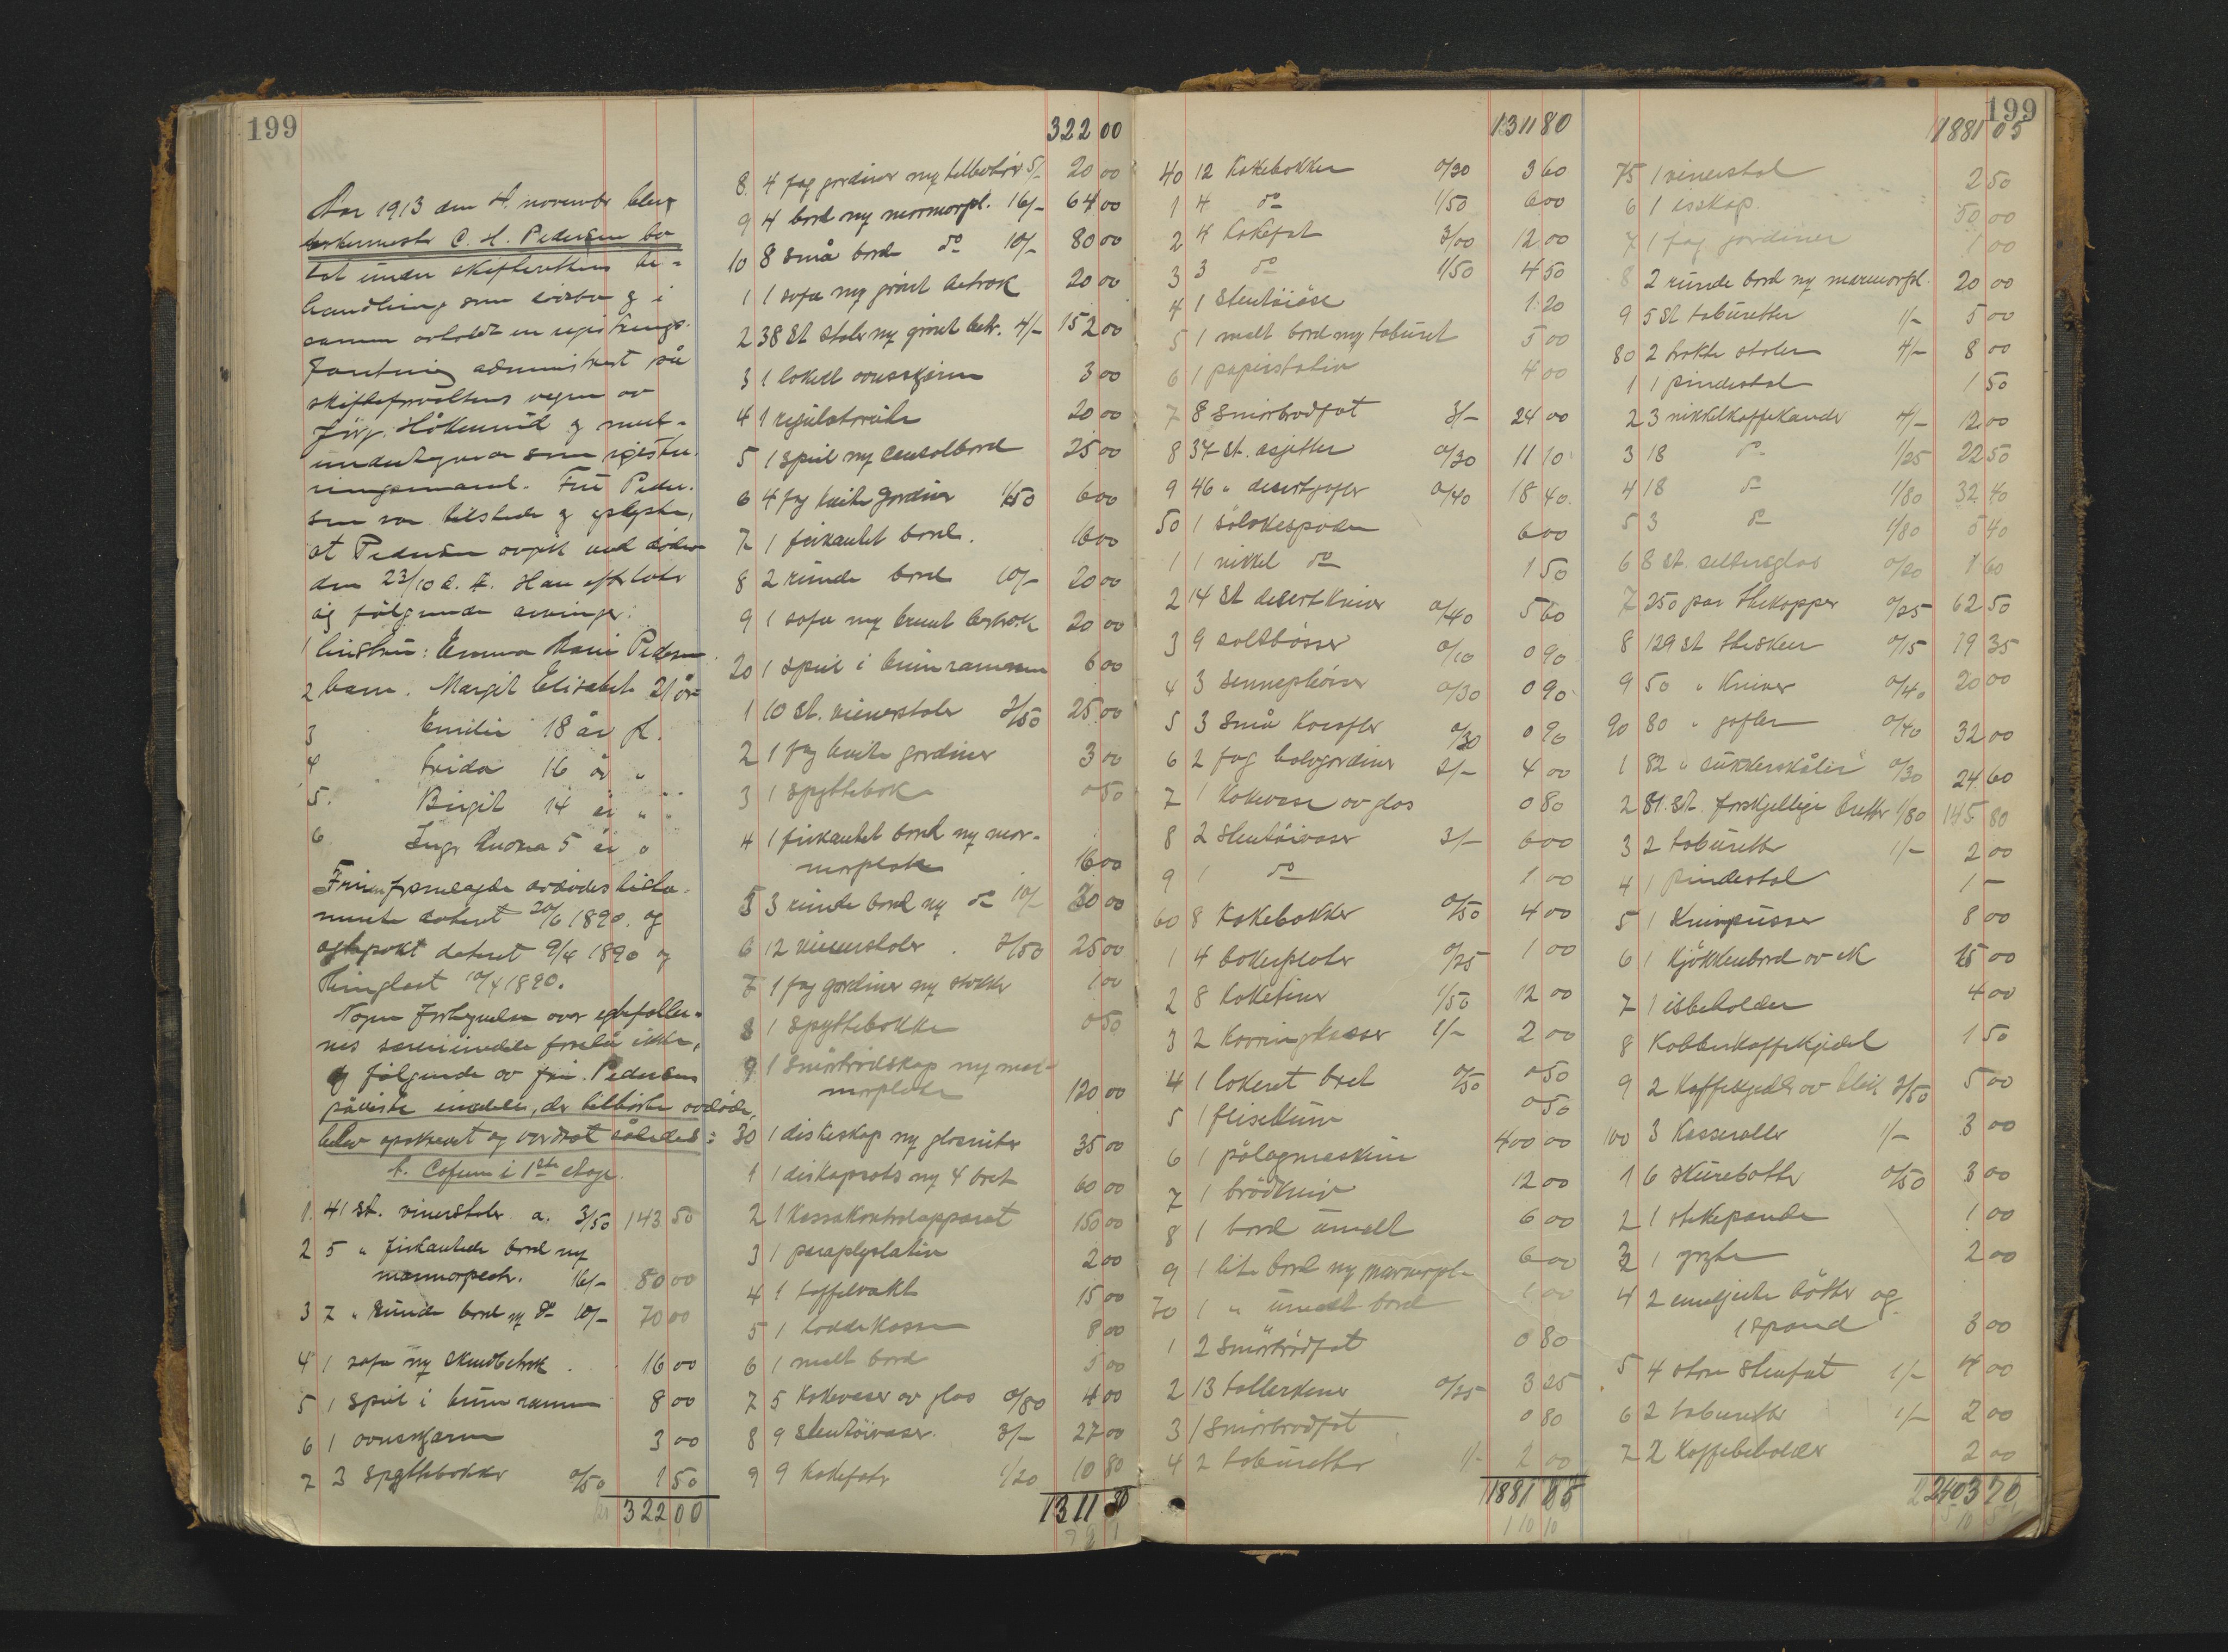 199
Aar 1913 den 4. november blev
bakermester C. H. Pedersens bo
tat under skifterettens be-
handling som
samme avholdt en registrerings-
forretning administrert på
skifteforvalterens vegne av
og med-
undertegnede som registre-
ringsmand. Fru Peder-
sen var tilstede og oplyste,
at Pedersen avgik ved døden
den 23/10 d. å. Han efterlot
sig følgende arvinger:
1 Enkefru: Emma Marie Pedersen
2 barn. Margit Elisabeth 21 år
3 Emilie 18 år
4 Frida 16 år "
5. Birgit 14 år "
6 Inger 5 år "
Fruen fremlagde avdødes
dateret 20/6 1890. og
ægtepakt dateret 9/4 1890 og
Tinglæst 10/4 1890.
Nogen fortegnelse over egtefolle-
nes særeiemidler forelå ikke,
og følgende av fru Pedersen
påviste eiendele, der tilhørte avdøde,
blev opskrevet og verdsat således:
A. Cafeen i 1ste etage.
1. 41 st. vinerstoler a. 3/50 143 50
2 5 " firkantede bord m/
marmorpl. 16/- 80 00
3 7 " runde bord m/ do 10/- 70 00
4 1 sofa m/ skindbetræk 16 00
5 1 speil i brun ramme 8 00
6 1 ovnsskjerm 3 00
7 3 spyttebakker 0/50 1 50
322 00
322 00
8 4 fag gardiner m/ tilbehør 5/- 20 00
9 4 bord m/ marmorpl. 16/- 64 00
10 8 små bord do 10/- 80 00
1 1 sofa m/ grønt betræk 20 00
2 38 st stoler m/ grønt betr. 4/- 152 00
3 1 lakert ovnsskjerm 3 00
4 1 regulatorur 20 00
5 1 speil m/ consolbord 25 00
6 4 fag hvite gardiner 1/50 6 00
7 1 firkantet bord. 16 00
8 2 runde bord 10/- 20 00
9 1 sofa m/ brunt betræk 20 00
20 1 speil i brun ramme 6 00
1 10 st. vinerstoler 2/50 25 00
2 1 fag hvite gardiner 3 00
3 1 spyttebak 0 50
4 1 firkantet bord m/ mar-
morplate 16 00
5 3 runde bord m/ do 10/- 30 00
6 12 vinerstoler 2/50 25 00
7 1 fag gardiner m/ stokker 1 00
8 1 spyttebakke 0 50
9 1 smørbrødskap m/ mar-
morplate 120 00
30 1 diskeskap m/ glasruter 35 00
1 1 m/ 4 bret 60 00
2 1 Kassakontrolapparat 150 00
3 1 paraplystativ 2 00
4 1 taffelvækt 15 00
5 1 8 00
6 1 malt bord 5 00
7 5 Kakevaser av glas 0/80 4 00
8 9 stentøivaser. 3/- 27 00
9 9 Kakefate 1/20 10 80
1311 80
1311 80
40 12 Kakebakker 0/30 3 60
1 4 do 1/50 6 00
2 4 Kakefat 3/00 12 00
3 3 do 1/50 4 50
4 1 1 20
5 1 malt bord m/ taburet 5 00
6 1 papirstativ 4 00
7 8 smørbrødfat 3/- 24 00
8 37 st. asjetter 0/30 11 10
9 46 " desertgafler 0/40 18 40
50 1 sølvkagespade 6 00
1 1 nikkel do 1 50
2 14 st desertkniver 0/40 5 60
3 9 saltbøsser 0/10 0 90
4 3 sennepskrus 0/30 0 90
5 3 små 0/30 0 90
6 2 fag halvgardiner 2/- 4 00
7 1 Kakevase av glas 0 80
8 2 stentøivaser 3/- 6 00
9 1 do 1 00
60 8 Kakebakker 0/50 4 00
1 4 bakerplater 0/25 1 00
2 8 1/50 12 00
3 2 1/- 2 00
4 1 lakeret bret 0/50 0 50
5 1 0 50
6 1 pålægmaskin 400 00
7 1 brødkniv 12 00
8 1 bord umalt 6 00
9 1 lite bord m/ marmorpl. 6 00
70 1 " umalt bord 1 00
1 2 smørbrødfat 0 80
2 13 tallerkener 0/25 3 25
3 1 smørbrødfat 0 80
4 2 taburetter 1/- 2 00
1881 05
199
1881 05
75 1 vinerstol 2 50
6 1 isskap 50 00
7 1 fag gardiner 1 00
8 2 runde bord m/ marmorpl. 20 00
9 5 st taburetter 1/- 5 00
80 2 trækte stoler 4/- 8 00
1 1 pindestol 1 50
2 3 nikkelkaffekander 4/- 12 00
3 18 do 1/25 22 50
4 18 do 1/80 32 40
5 3 do 1/80 5 40
6 8 st. seltersglas 0/20 1 60
7 250 par thekopper 0/25 62 50
8 129 st theskeer 0/15 19 35
9 50 " Kniver 0/40 20 00
90 80 " gafler 0/40 32 00
1 82 " sukkerskåler 0/30 24 60
2 81 st. forskjellige bretter 1/80 145 80
3 2 taburetter 1/- 2 00
4 1 pindestol 1 -
5 1 Knivpusser 8 00
6 1 Kjøkkenbord av ek 25 00
7 1 isbeholder 4 00
8 Kobberkaffekjedel 1 50
9 2 Kaffekjedler av blik 2/50 5 00
100 3 Kasseroller 1/- 3 00
1 6 skurebøtter 0/50 3 00
2 1 stekepande 1 00
3 1 gryte 2 00
4 2 emaljerte bøtter og
1 spand 3 00
5 4 store stenfat 1/- 4 00
6 2 taburetter 1/- 2 00
7 2 Kaffebeholder 2 00
2403 70